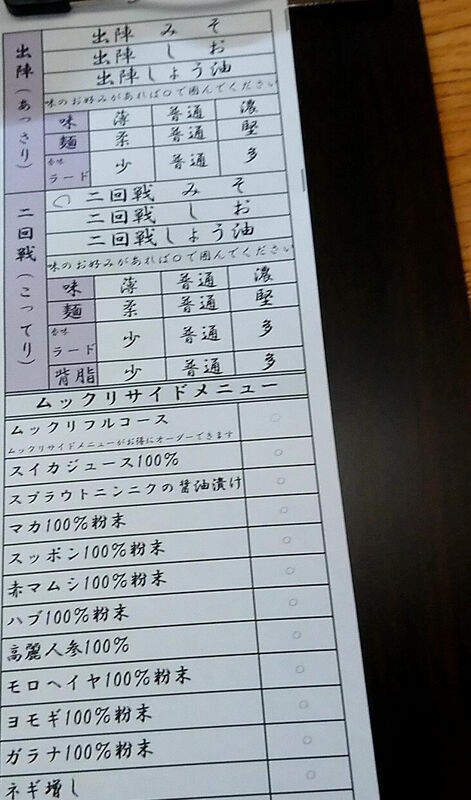 出陣(あっさり)
出陣 みそ
出陣 しお
出陣しょう油
味のお好みがあれば○で囲んでください
味 薄 普通 濃
麺 柔 普通 堅
香味ラード 少 普通 多
二回戦(こってり)
二回戦 みそ
二回戦 しお
二回戦しょう油
味のお好みがあれば○で囲んでください
味 薄 普通 濃
麺 柔 普通 堅
香味ラード 少 普通 多
背脂 少 普通 多
ムックリサイドメニュー
ムックリフルコース ○
ムックリサイドメニューがお得にオーダーできます
スイカジュース100% ○
スプラウトニンニクの醤油漬け ○
マカ100%粉末 ○
スッポン100%粉末 ○
赤マムシ100%粉末 ○
ハブ100%粉末 ○
高麗人参100% ○
モロヘイヤ100%粉末 ○
ヨモギ100%粉末 ○
ガラナ100%粉末 ○
ネギ増し ○